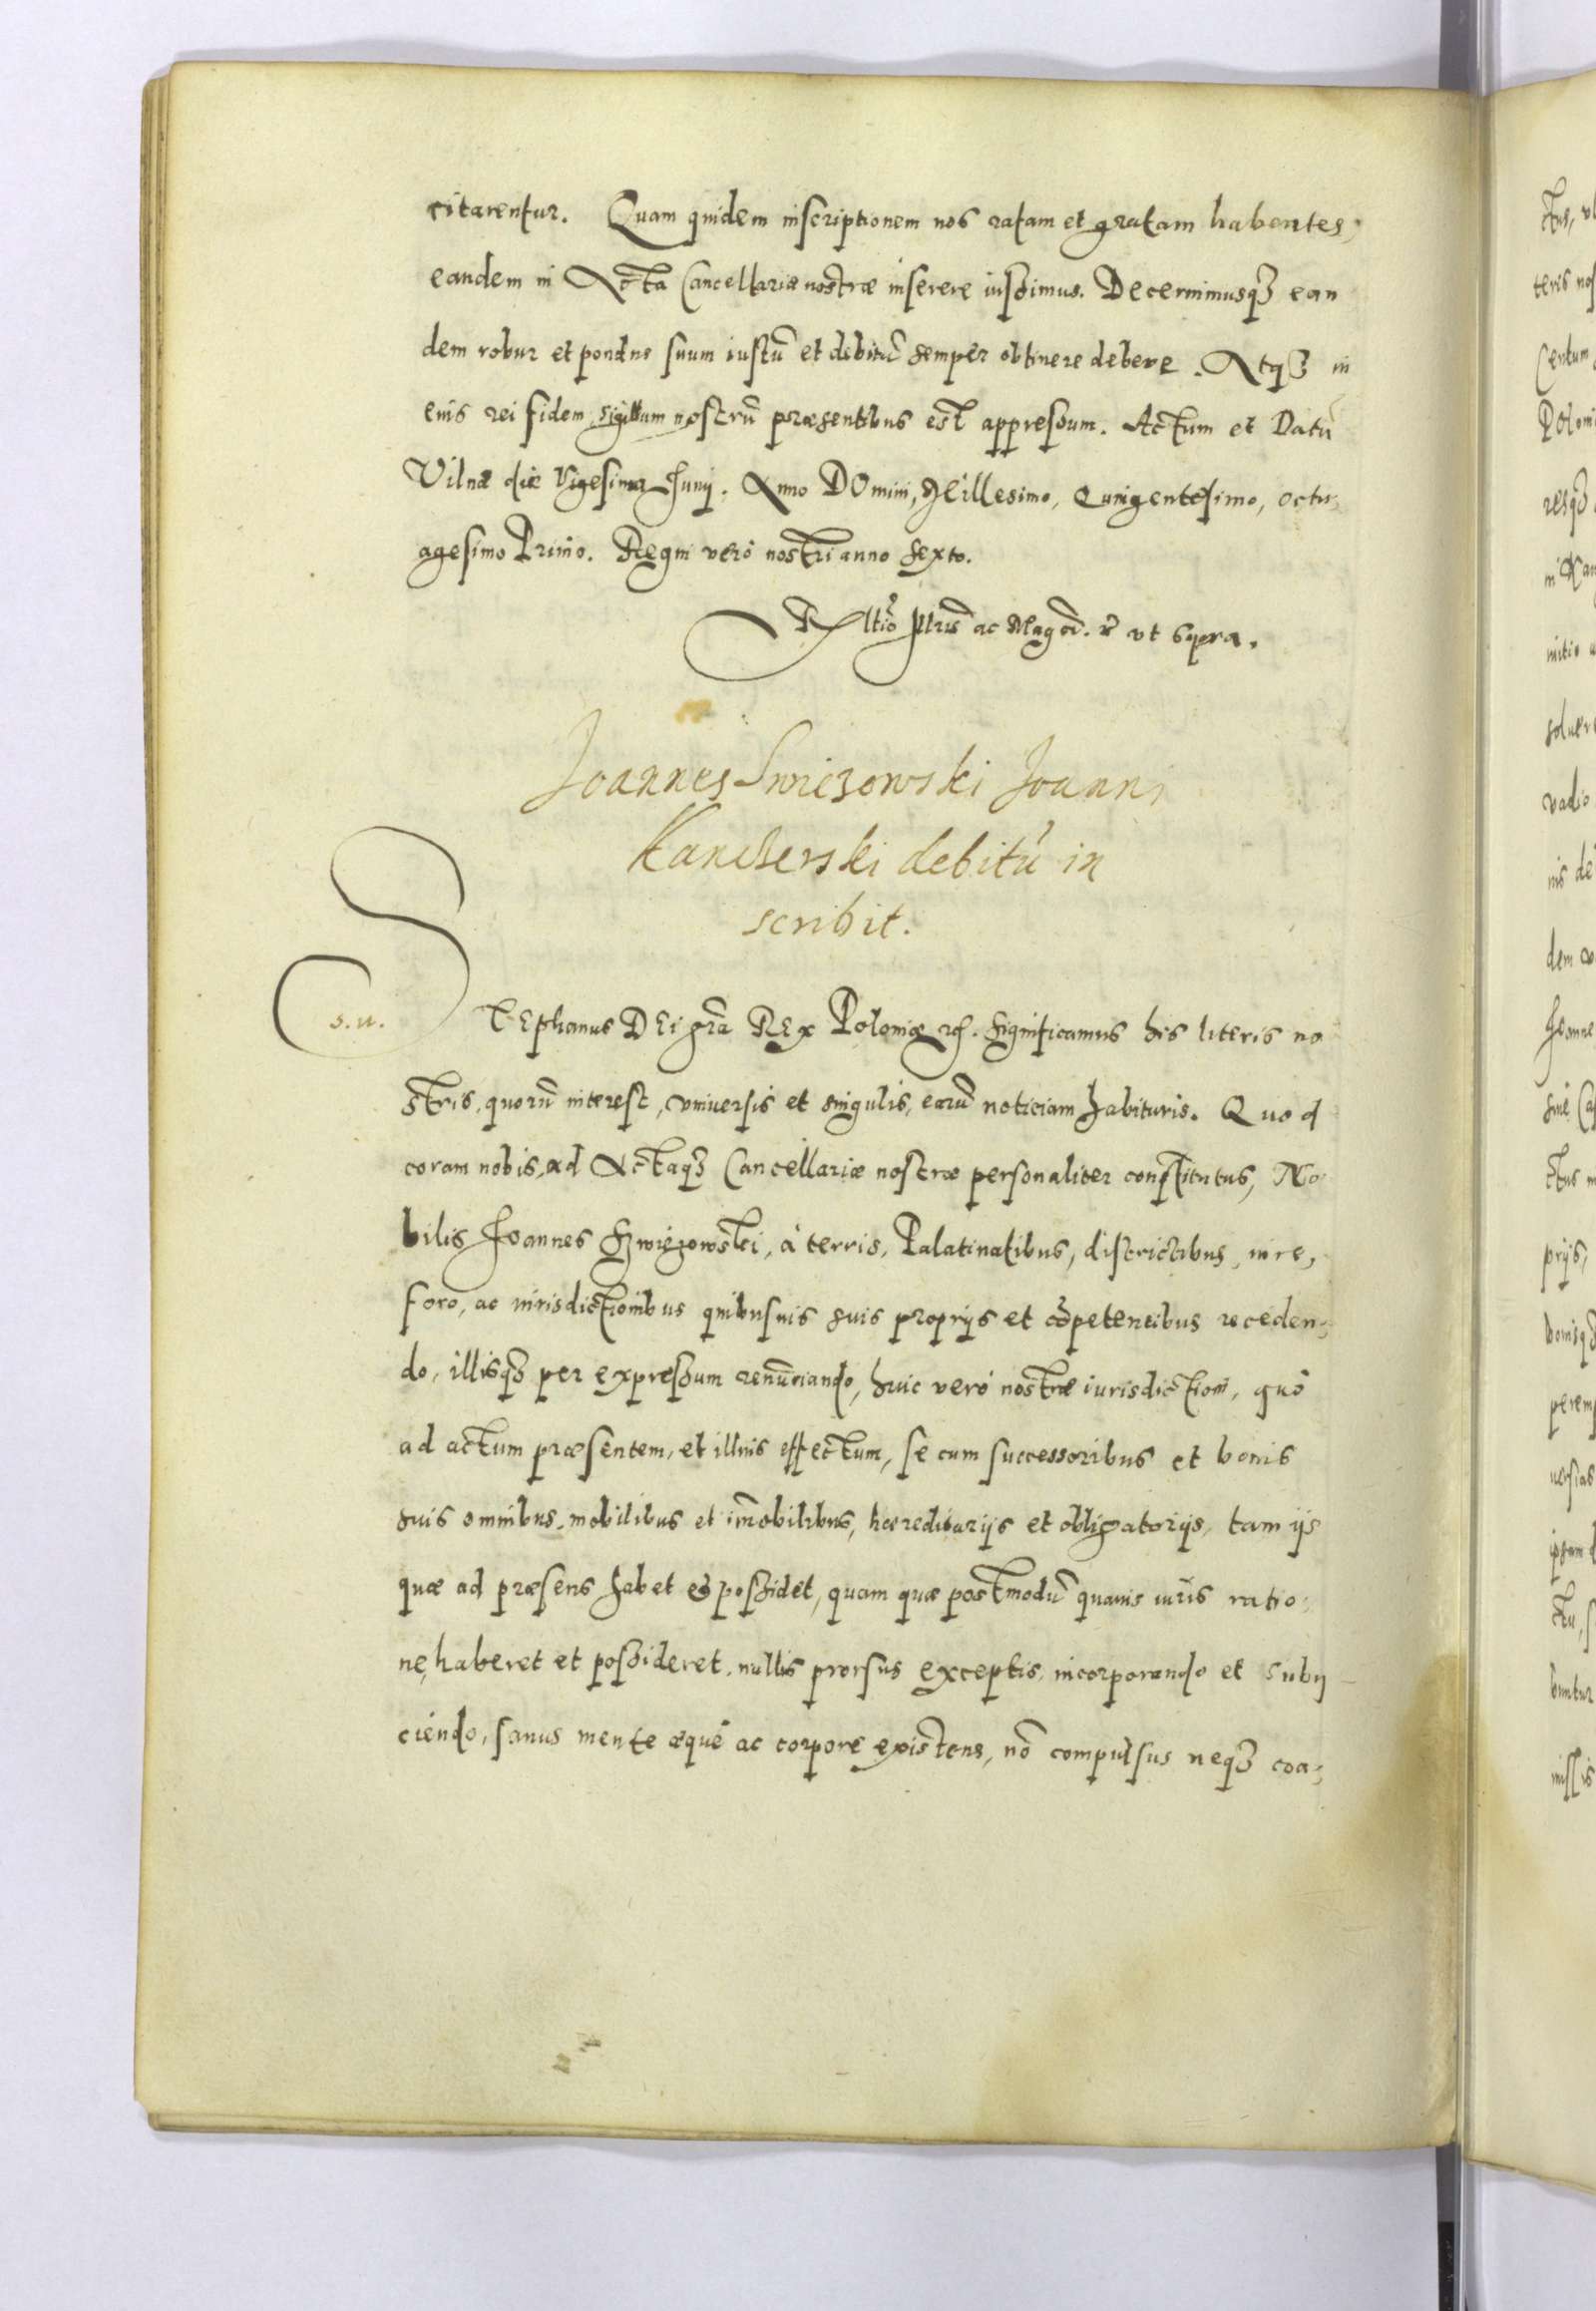 citarentur. Quam quidem inscriptionem nos ratam et gratam habentes,
eandem in Acta Cancellariæ nostræ inserere iussimus. Decernimusqȝ ean
dem robur et pondus suum iustū et debitū semper obtinere debere. Atqȝ in
euis rei fidem sigillum nostrū præsentibus est appressum. Actum et Datū
Vilnæ die Vigesima Junij. Anno DOmini, Millesimo, Quingentesimo, octu
agesimo Primo. Regni verò nostri anno sexto.
Rltio Illris ac Magci. &c ut supra.
Joannes Swiezowski Joanni
Kanczerski debitū in
scribit.
s. u.
STEphanus DEi grã REx Poloniæ etc. Significamus his literis no
stris, quorū interest, vniuersis et singulis, earū noticiam habituris. Quod
coram nobis, ad Actaqȝ Cancellariæ nostræ personaliter constitutus, No
bilis Joannes Szwiezowski, à terris, Palatinatibus, districtibus, iure,
foro, ac iurisdictionibus quibusuis suis proprijs et cōpetentibus receden;
do, illisqȝ per expressum renūciando, huic verò nostræ iurisdictioni, quò
ad actum præsentem, et illius effectum, se cum successoribus et bonis
suis omnibus, mobilibus et im̄obilibus, hæreditarijs et obligatorijs, tam ijs
quæ ad præsens habet et possidet, quam quæ postmodū quauis iuris ratio;
ne, haberet et possideret, nullis prorsus exceptis, incorporando et subij
ciendo, sanus mente æquè ac corpore existens, nō compulsus neqȝ coa;